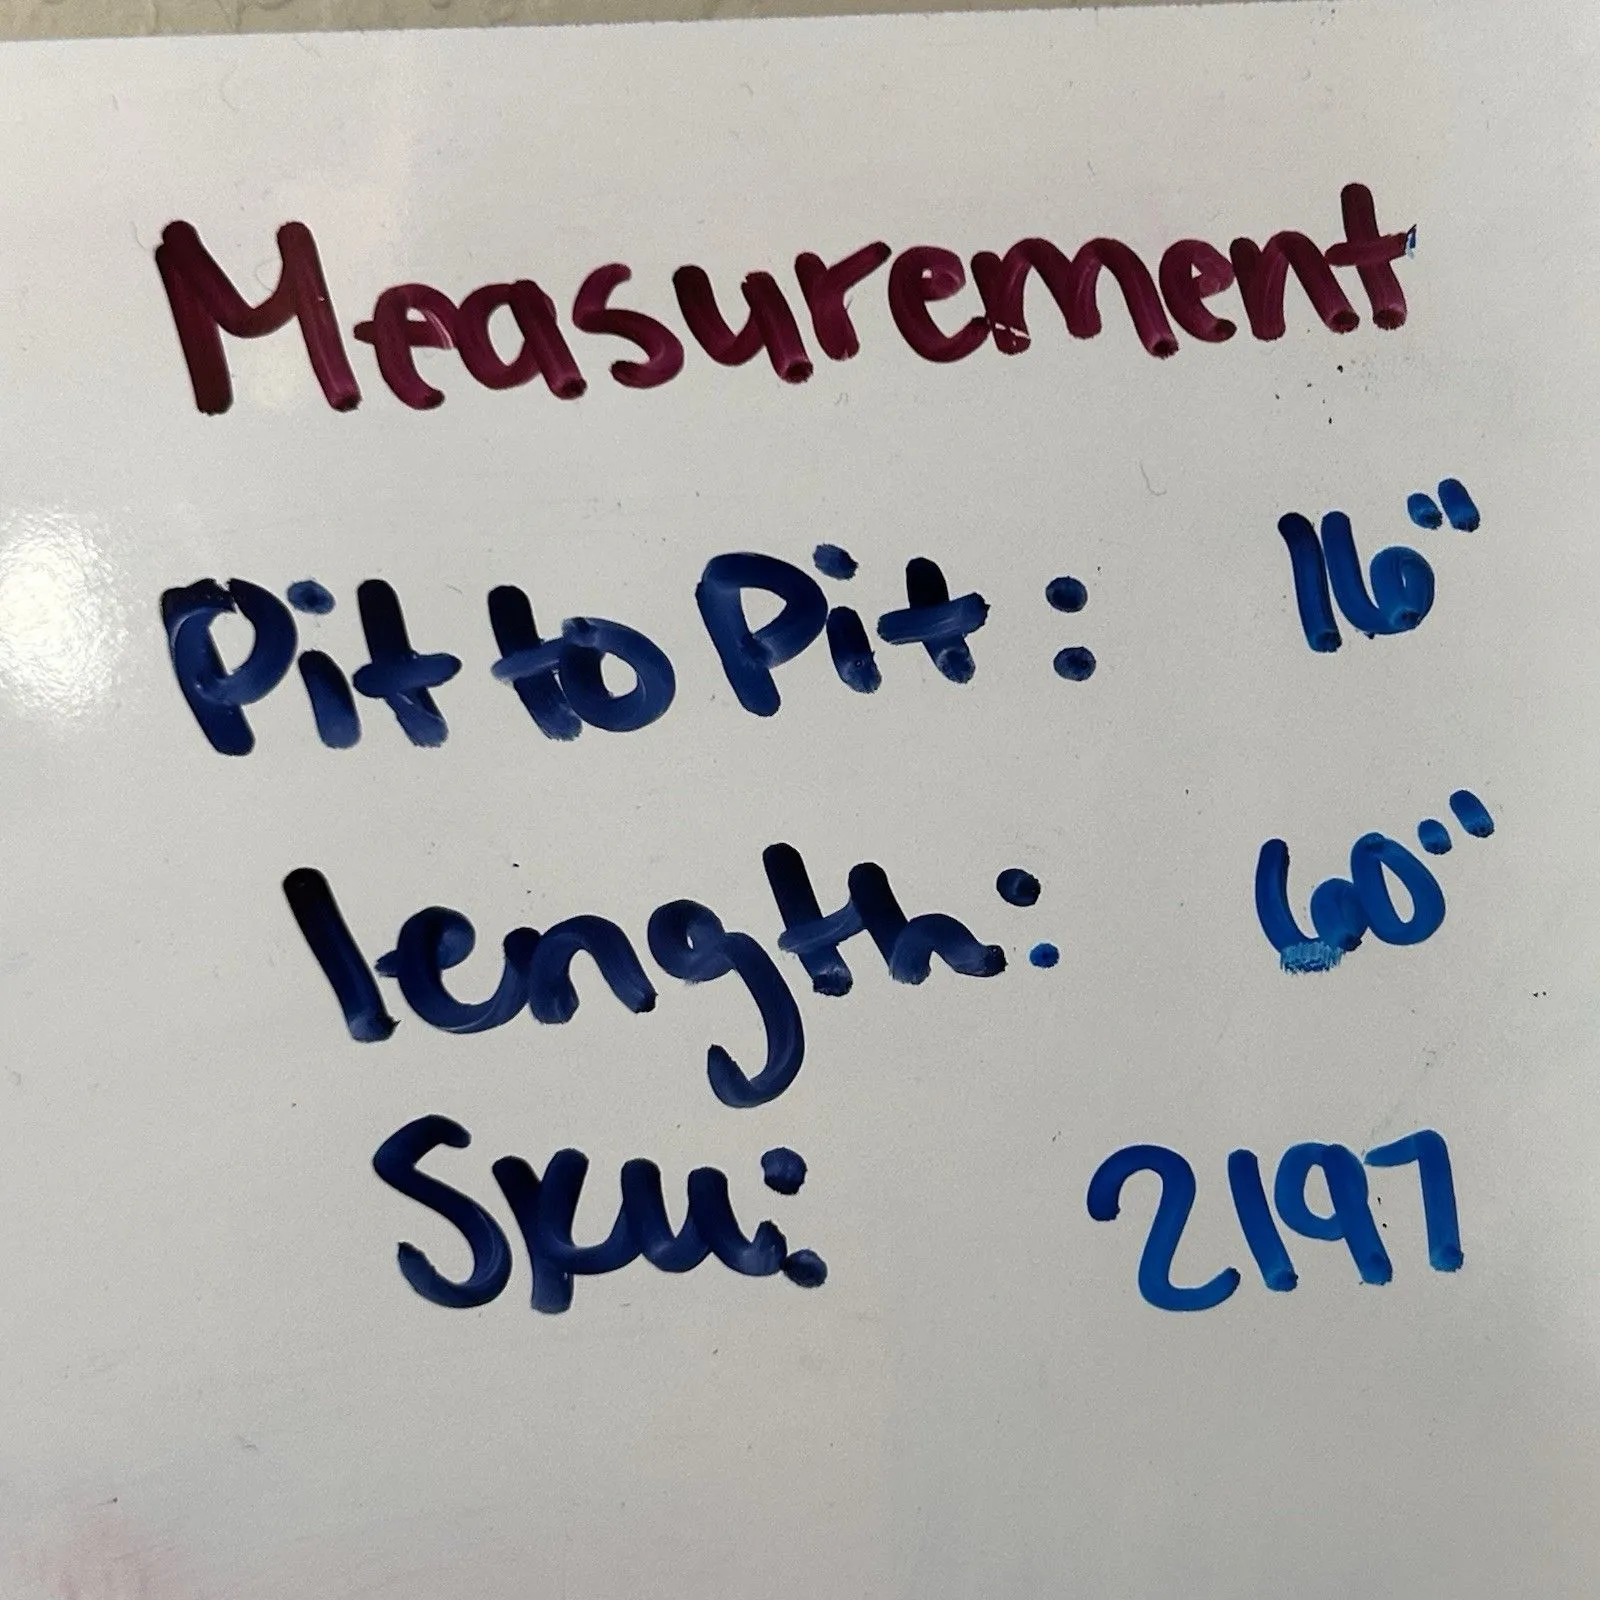 Measurement
Pit to Pit: 16"
length: 60"
Sku: 2197